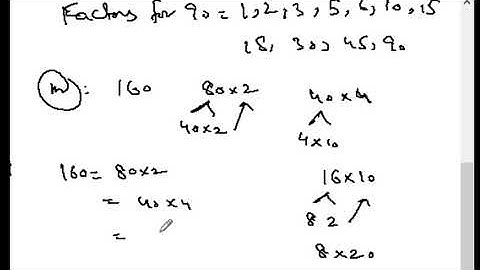 Factors for 90 = 1, 2, 3, 5, 6, 10, 15
18, 30, 45, 90
: 160 80x2 40x4
40x2 4x10
160 = 80x2 16x10
= 40x4 8 2
= 8x20